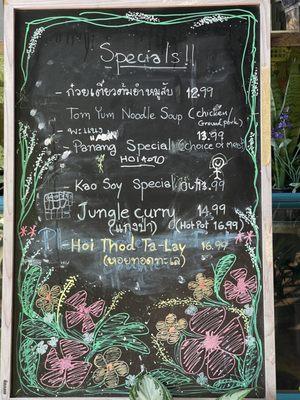 Specials!!
- ก๋วยเตี๋ยวต้มยำหมูสับ 12.99
Tom Yum Noodle Soup (chicken/
Ground pork)
- พะแนง 13.99
- Panang Special (choice of meat)
HOITOD
Kao Soy Special 13.99
Jungle curry 14.99
(แกงป่า) (Hot Pot 16.99)
- Hoi Thod Ta-Lay 16.99
(หอยทอดทะเล)